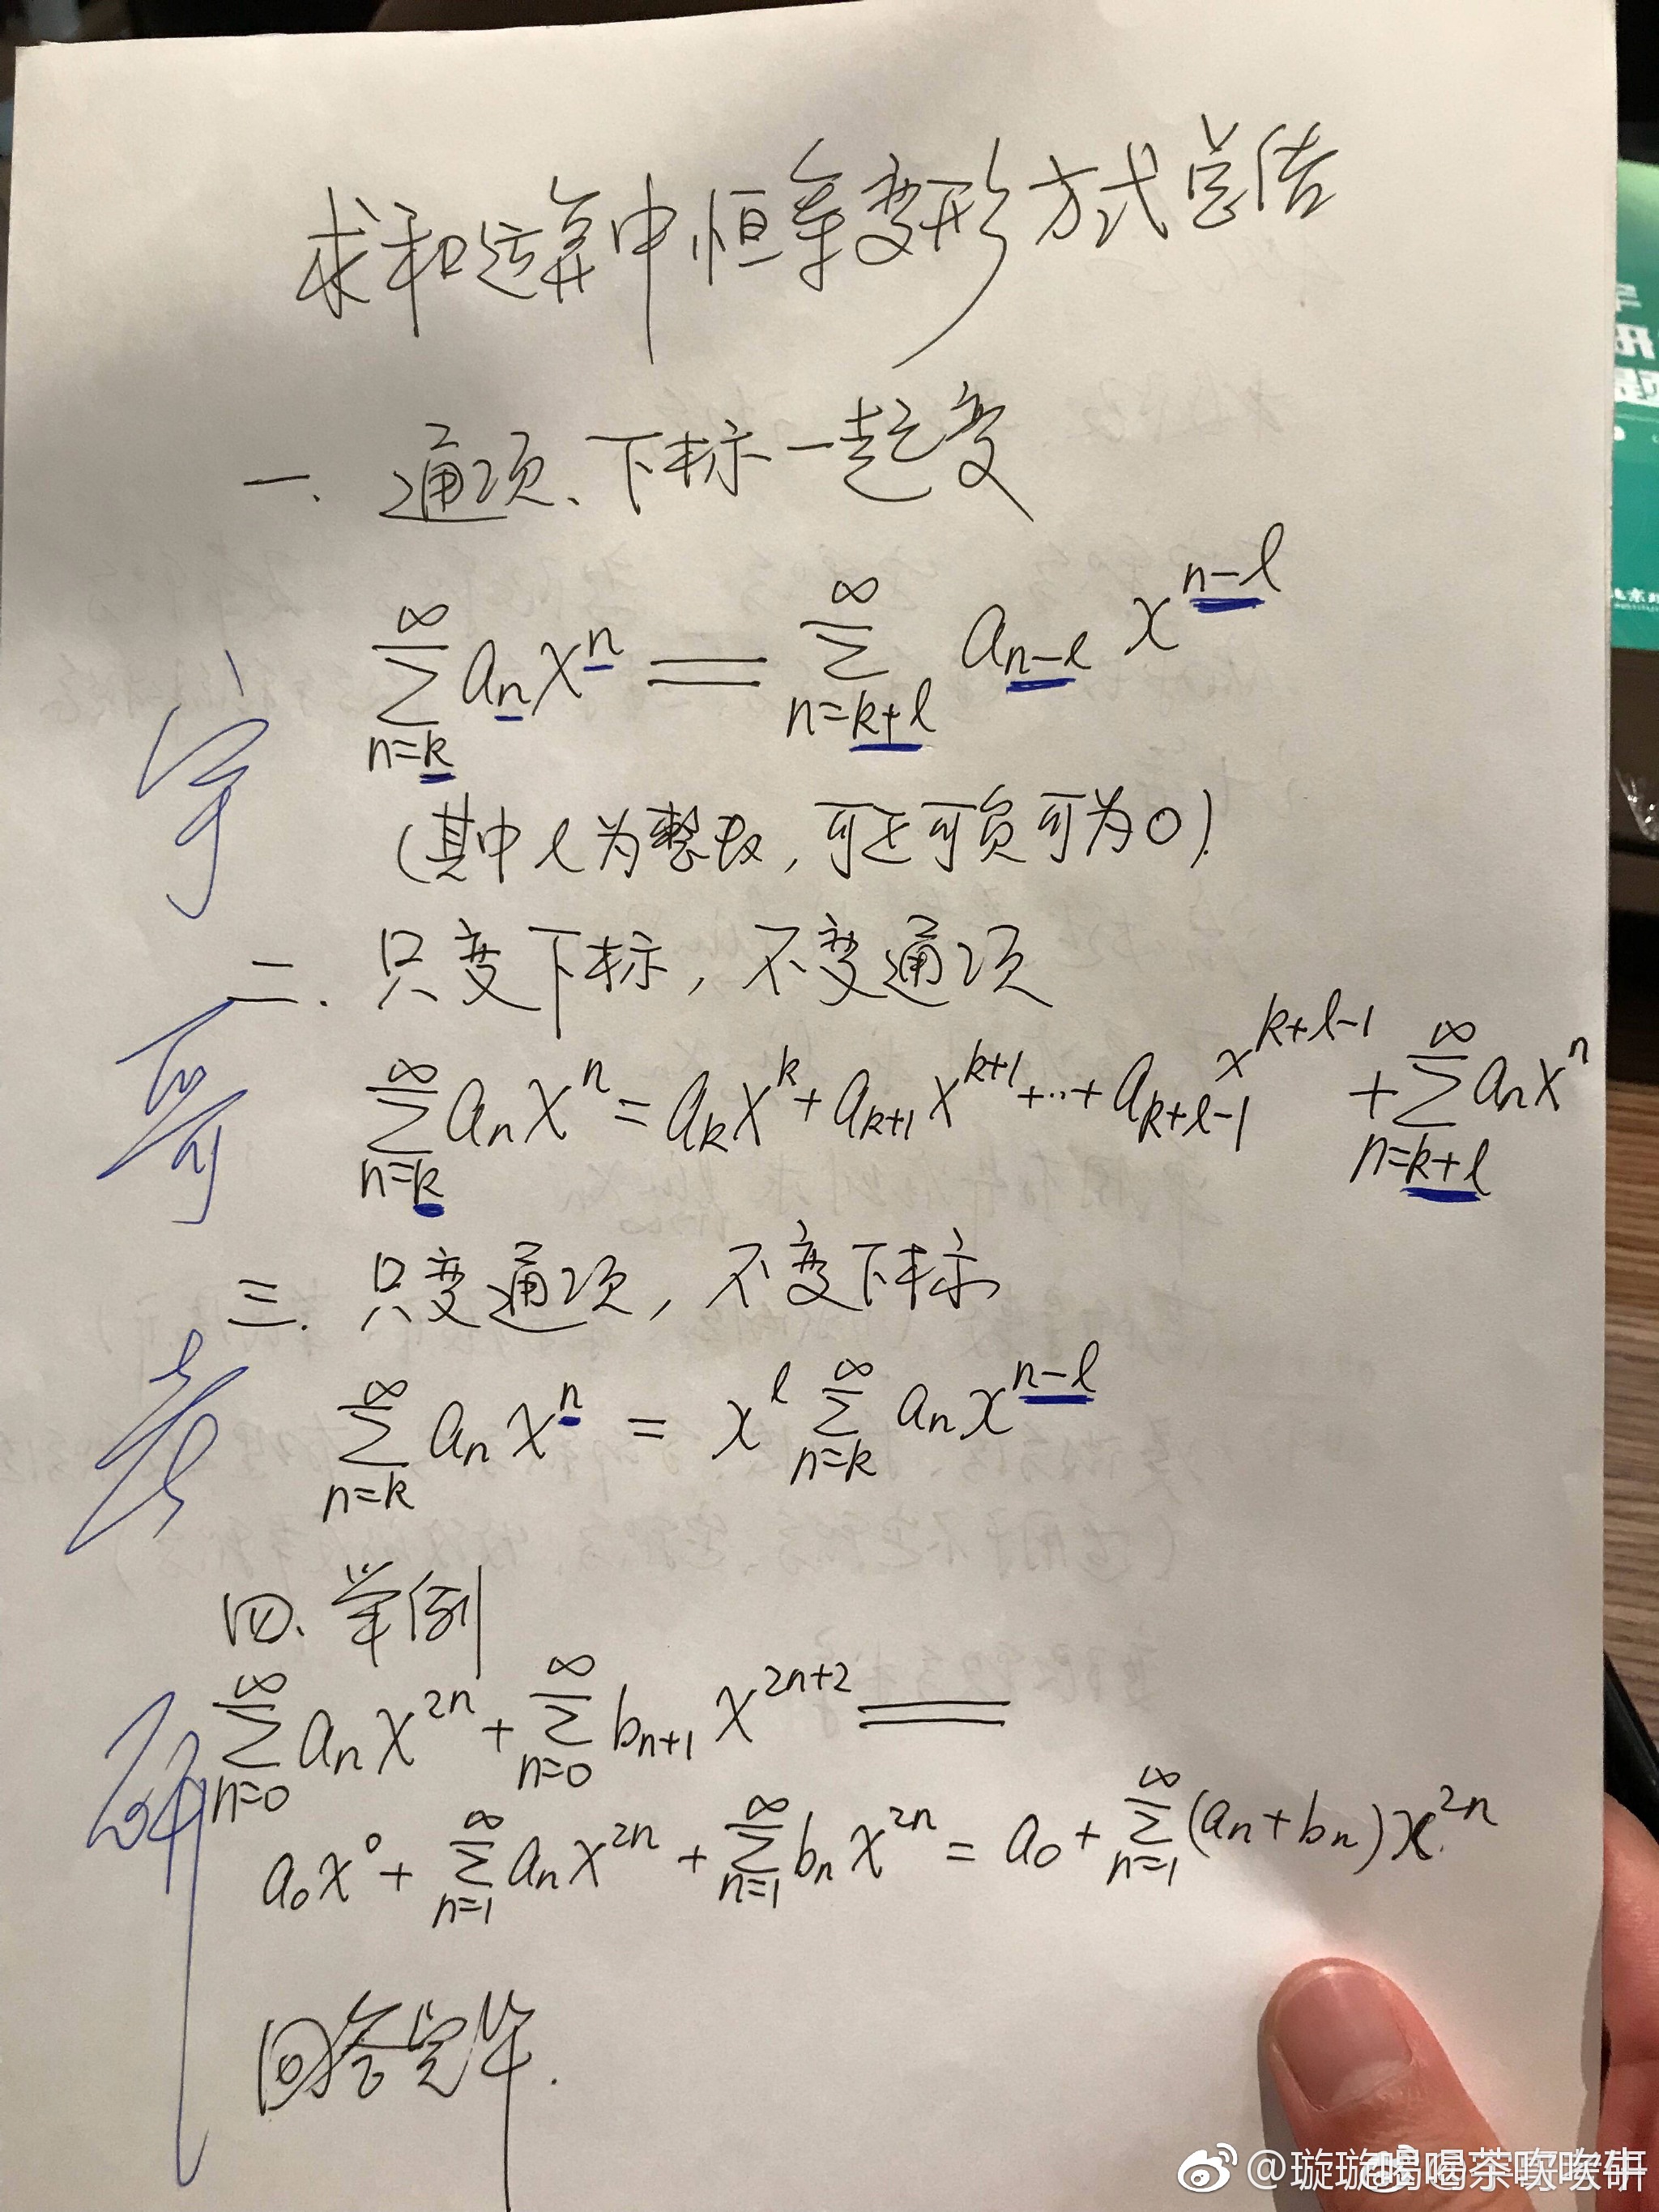 求和运算中恒等变形方式总结
一. 通项、下标一起变
∑_{n=k}^{∞} a_n x^n = ∑_{n=k+l}^{∞} a_{n-l} x^{n-l}
(其中l为整数, 可正可负可为0).
二. 只变下标, 不变通项
∑_{n=k}^{∞} a_n x^n = a_k x^k + a_{k+1} x^{k+1} + ... + a_{k+l-1} x^{k+l-1} + ∑_{n=k+l}^{∞} a_n x^n
三. 只变通项, 不变下标
∑_{n=k}^{∞} a_n x^n = x^l ∑_{n=k}^{∞} a_n x^{n-l}
四. 举例
∑_{n=0}^{∞} a_n x^{2n} + ∑_{n=0}^{∞} b_{n+1} x^{2n+2} =
a_0 x^0 + ∑_{n=1}^{∞} a_n x^{2n} + ∑_{n=1}^{∞} b_n x^{2n} = a_0 + ∑_{n=1}^{∞} (a_n + b_n) x^{2n}.
回答完毕.
宇
哥
考
研